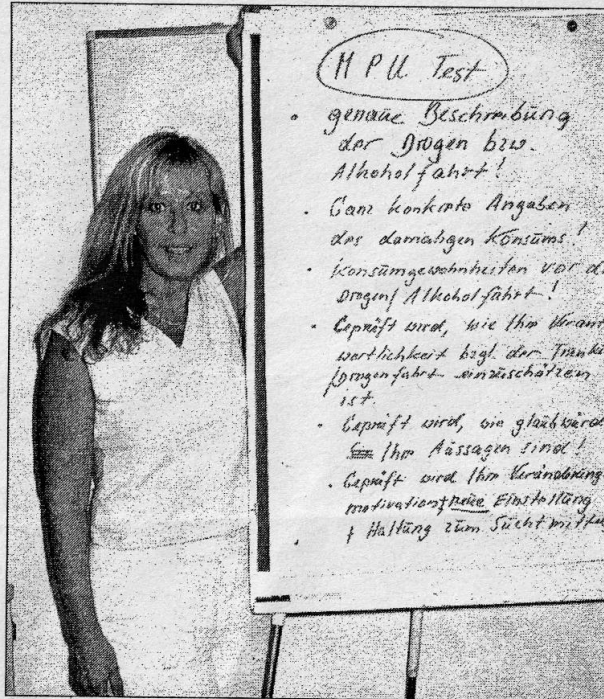 MPU Test
• genaue Beschreibung
der Drogen bzw.
Alkoholfahrt!
• Ganz konkrete Angaben
des damaligen Konsums!
• Konsumgewohnheiten vor d
Drogen/Alkoholfahrt!
• Geprüft wird, wie Ihre Verant
wortlichkeit bzgl. der Trunk
/Drogenfahrt einzuschätzen
ist.
• Geprüft wird, wie glaubwürd
Ihre Aussagen sind!
• Geprüft wird Ihre Veränderung
motivation + neue Einstellung
+ Haltung zum Suchtmittel